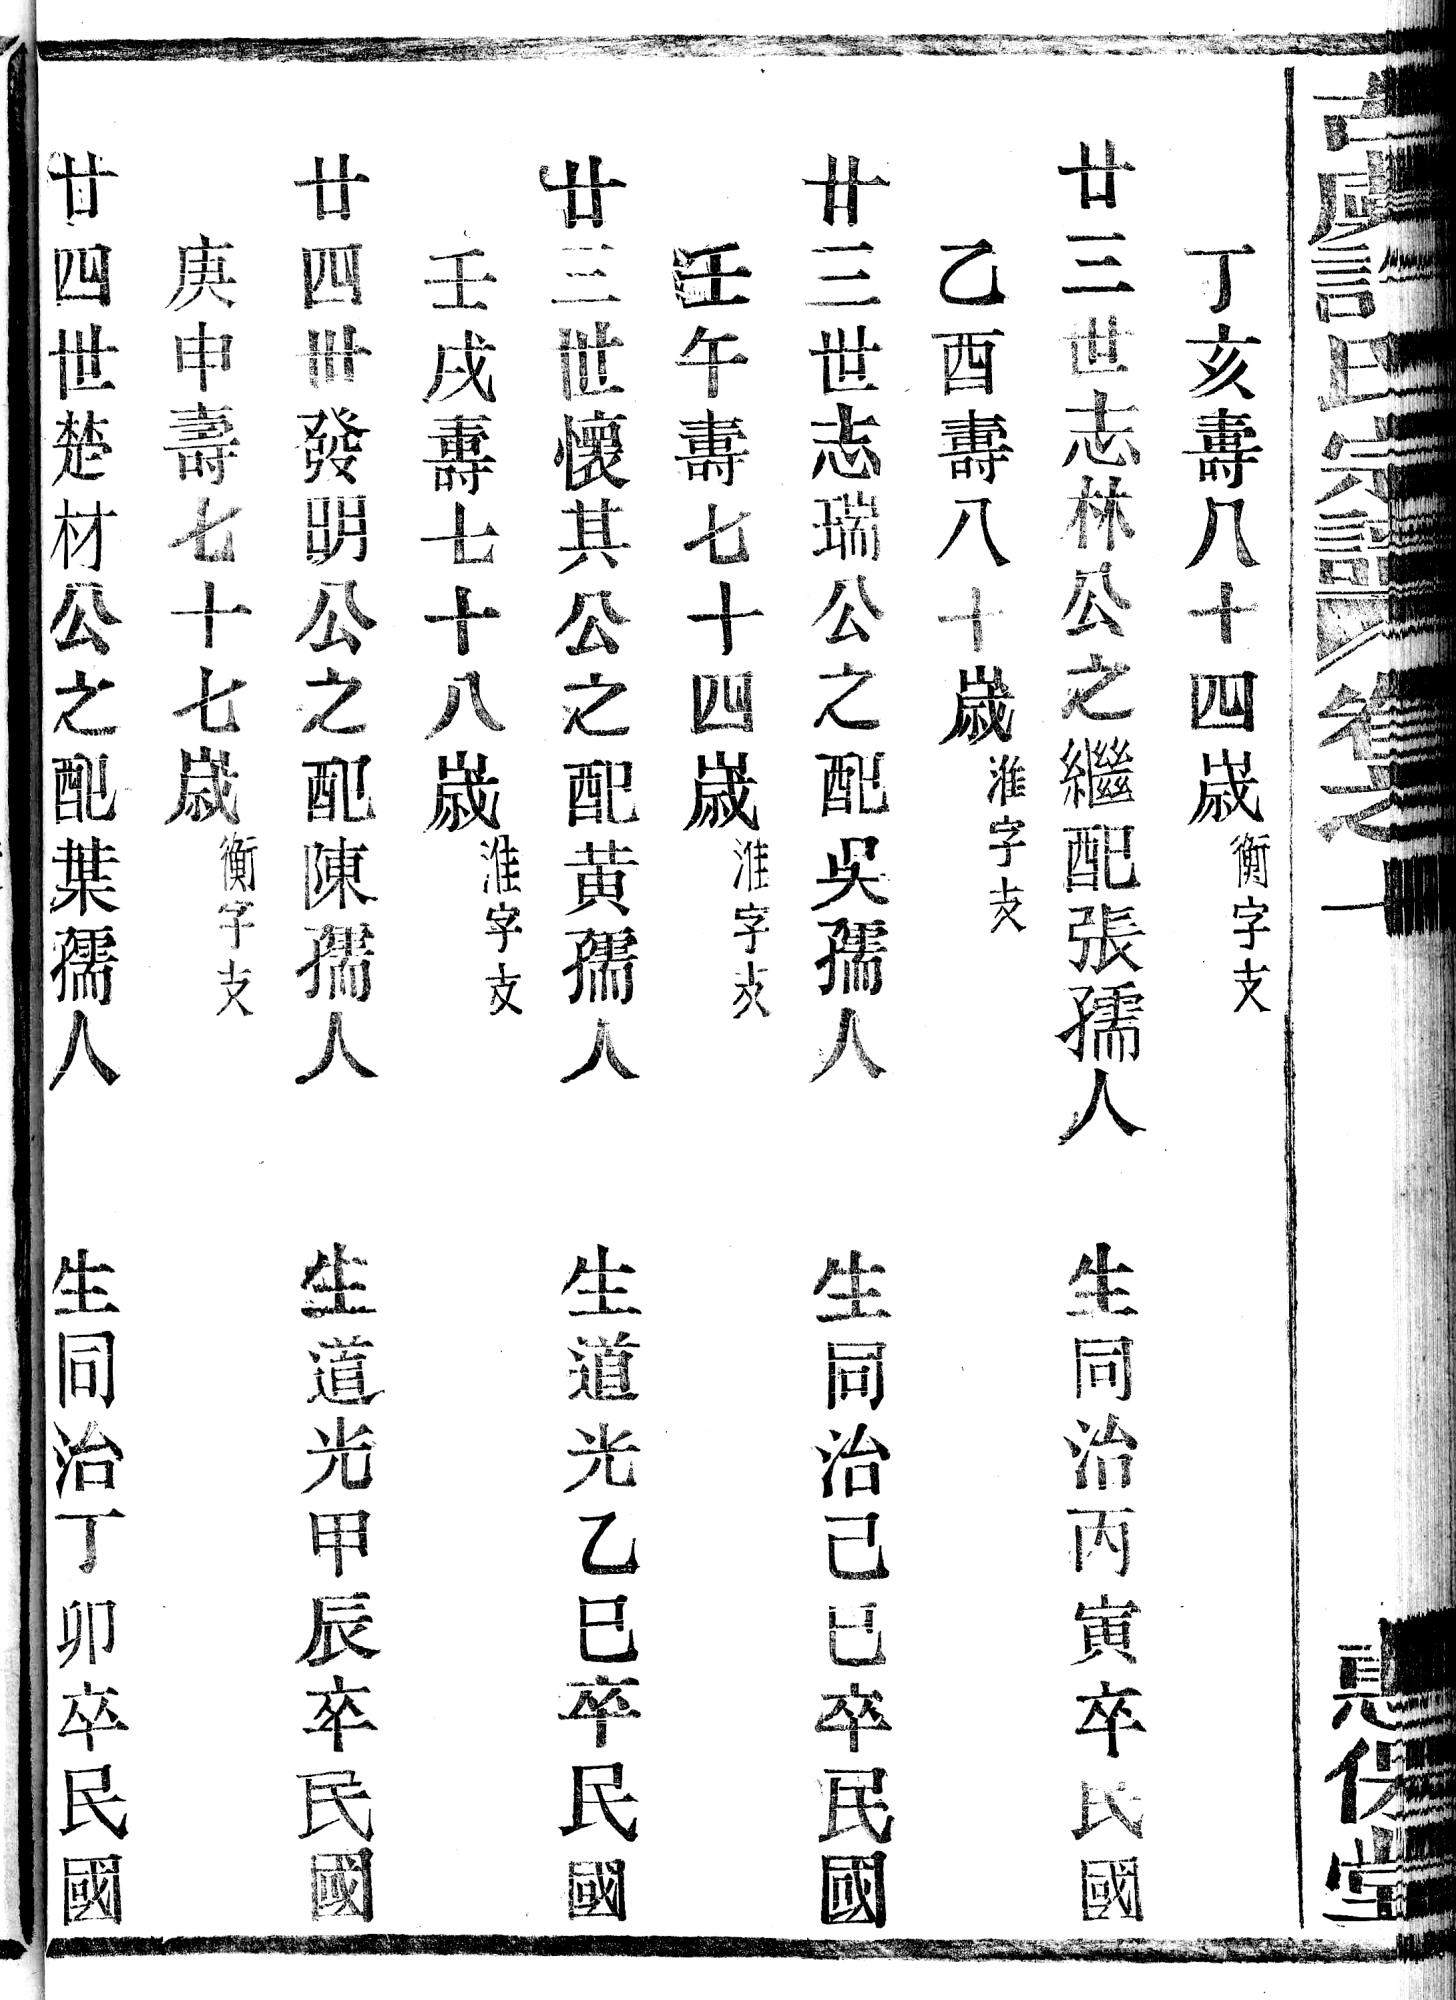 氏宗譜 卷之一
保堂
丁亥壽八十四歲 衡字支
廿三世志林公之繼配張孺人 生同治丙寅卒民國
乙酉壽八十歲 淮字支
廿三世志瑞公之配吳孺人 生同治己巳卒民國
壬午壽七十四歲 淮字支
廿三世懷其公之配黄孺人 生道光乙巳卒民國
壬戌壽七十八歲 淮字支
廿四世發明公之配陳孺人 生道光甲辰卒民國
庚申壽七十七歲 衡字支
廿四世楚材公之配葉孺人 生同治丁卯卒民國